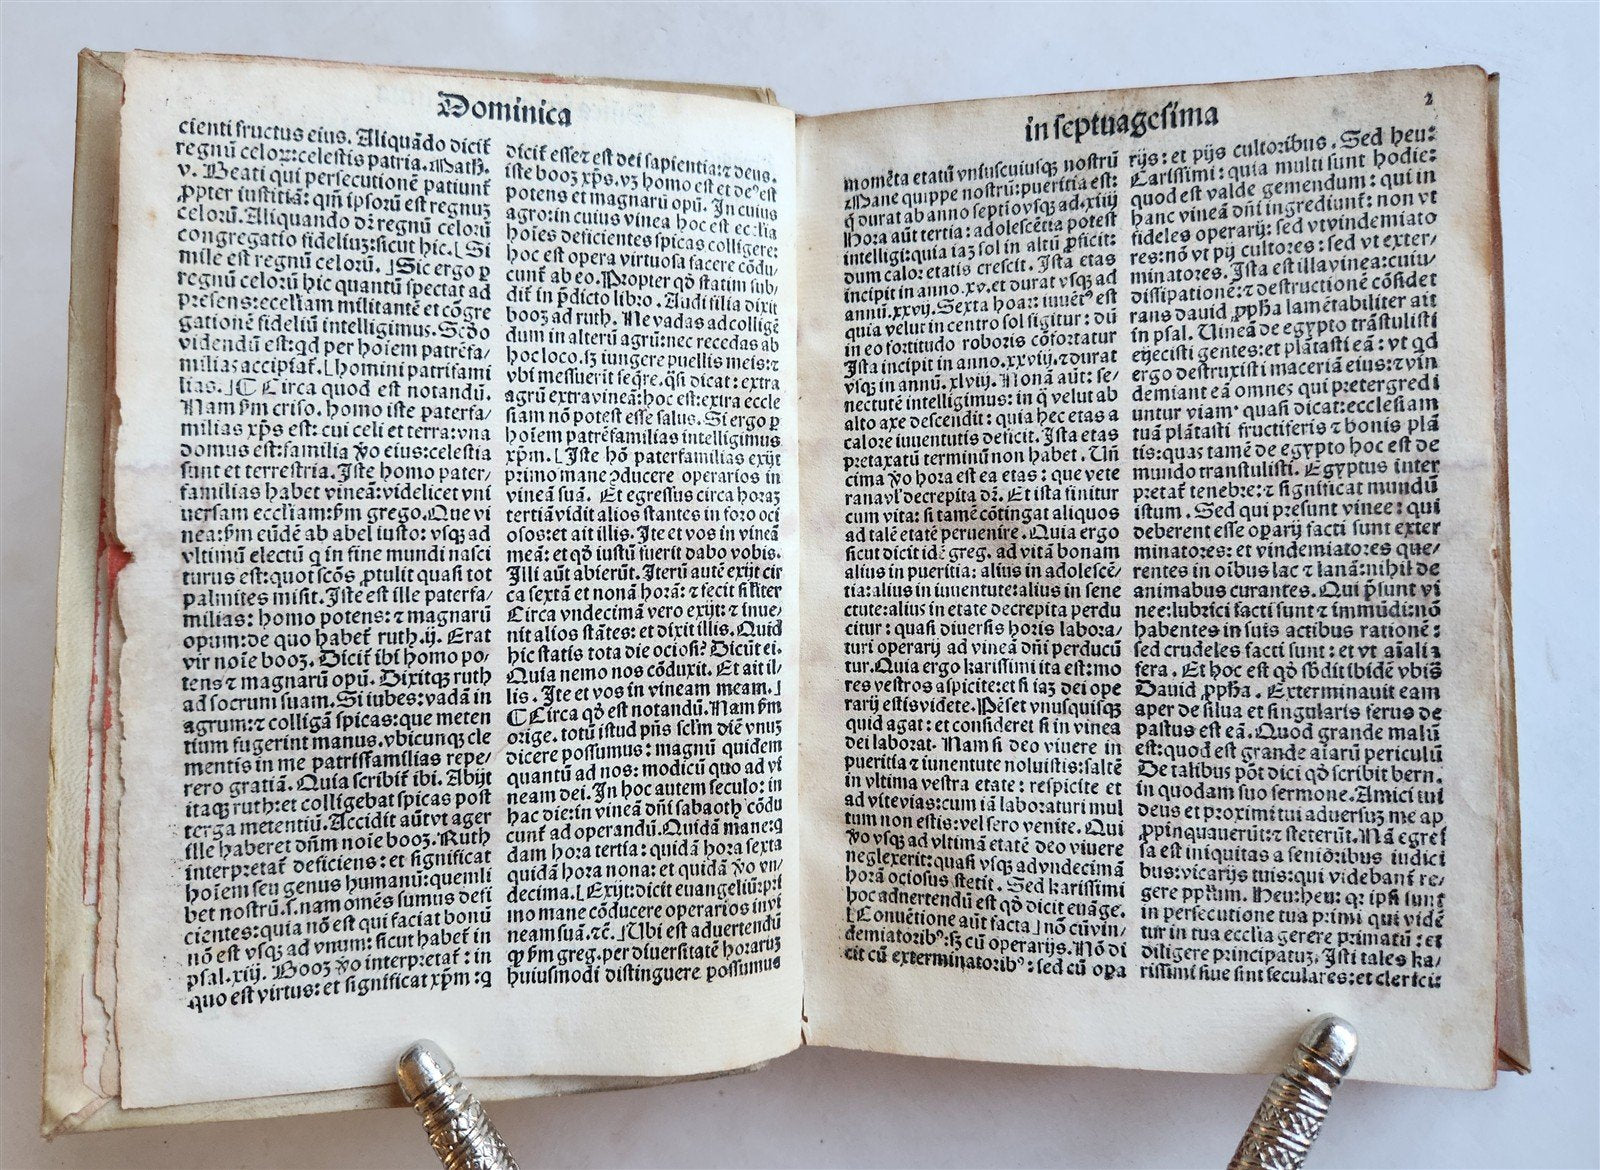 Dominica
cienti fructus eius. Aliquãdo dicit̃
regnũ celoꝝ: celestis patria. Math.
v. Beati qui persecutionẽ patiunt̃
ꝓpter iustitiã: qm̃ ipsorũ est regnuꝫ
celorũ. Aliquando dr̃ regnũ celorũ
congregatio fideliuꝫ: sicut hic. [Si
mile est regnũ celorũ.] Sic ergo ꝑ
regnũ celorũ hic quantũ spectat ad
presens: eccl̃iam militantẽ et cõgre
gationẽ fideliũ intelligimus. Scd̃o
videndũ est: qd per hoĩem patrẽfa⸗
milias accipiat̃. [homini patrifami
lias.] ¶ Circa quod est notandũ.
Nam ẜm criso. homo iste paterfa⸗
milias xp̃s est: cui celi et terra: vna
domus est: familia ꝟo eius: celestia
sunt et terrestria. Iste homo pater⸗
familias habet vineã: videlicet vni
uersam eccl̃iam: ẜm grego. Que vi
nea: ẜm eũdẽ ab abel iusto: vsqꝫ ad
vltimũ electũ q in fine mundi nasci
turus est: quot scõs ꝓtulit quasi tot
palmites misit. Iste est ille paterfa⸗
milias: homo potens: ⁊ magnarũ
opum: de quo habet̃ ruth. ij. Erat
vir noĩe booꝫ. Dicit̃ ibi homo po⸗
tens ⁊ magnarũ opũ. Dixitqꝫ ruth
ad socrum suam. Si iubes: vadã in
agrum: ⁊ colligã spicas: que meten
tium fugerint manus. vbicunqꝫ cle
mentis in me patrisfamilias repe⸗
rero gratiã. Quia scribit̃ ibi. Abijt
itaqꝫ ruth: et colligebat spicas post
terga metentiũ. Accidit aũt vt ager
ille haberet dñm noĩe booꝫ. Ruth
interpretat̃ deficiens: et significat
hoĩem seu genus humanũ: quemli
bet nostrũ. s. nam omẽs sumus defi
cientes: quia nõ est qui faciat bonũ
nõ est vsqꝫ ad vnum: sicut habet̃ in
psal. xiij. Booꝫ ꝟo interpretat̃: in
quo est virtus: et significat xp̃m: q
dicit̃ esse: ⁊ est dei sapientia: ⁊ deus.
iste booꝫ xp̃s. vꝫ homo est et deꝰ est
potens et magnarũ opũ. In cuius
agro: in cuius vinea hoc est ecc̃lia
hoĩes deficientes spicas colligere:
hoc est opera virtuosa facere cõdu⸗
cunt̃ ab eo. Propter qđ statim sub⸗
dit̃ in p̃dicto libro. Audi filia dixit
booꝫ ad ruth. Ne vadas ad colligẽ
dum in alterũ agrũ: nec recedas ab
hoc loco. sꝫ iungere puellis meis: ⁊
vbi messuerit seq̃re. q̃si dicat: extra
agrũ extra vineã: hoc est: extra eccle
siam nõ potest esse salus. Si ergo ꝑ
hoĩem patrẽfamilias intelligimus
xp̃m. [Iste hõ paterfamilias exijt
primo mane ꝯducere operarios in
vineã suã. Et egressus circa horaꝫ
tertiã vidit alios stantes in foro oci
osos: et ait illis. Ite et vos in vineã
meã: et qđ iustũ fuerit dabo vobis.
Illi aũt abierũt. Iterũ autẽ exijt cir
ca sextã et nonã horã: ⁊ fecit sil̃iter
Circa vndecimã vero exijt: ⁊ inue⸗
nit alios stãtes: et dixit illis. Quid
hic statis tota die ociosi? Dicũt ei.
Quia nemo nos cõduxit. Et ait il⸗
lis. Ite et vos in vineam meam.]
¶ Circa qđ est notandũ. Nam ẜm
orige. totũ istud pñs scl̃m diẽ vnuꝫ
dicere possumus: magnũ quidem
quantũ ad nos: modicũ quo ad vi
neam dei. In hoc autem seculo: in
hac die: in vineã dñi sabaoth cõdu
cunt̃ ad operandũ. Quidã mane: q
dam hora tertia: quidã hora sexta
quidã hora nona: et quidã ꝟo vn⸗
decima. [Exijt: dicit euangeliũ: pri
mo mane cõducere operarios in vi
neam suã. ⁊c̃.] Vbi est aduertendũ
ꝙ ẜm greg. per diuersitatẽ horaruꝫ
huiusmodi distinguere possumus
in septuagesima
2
momẽta etatũ vniuscuiusqꝫ nostrũ
Mane quippe nostrũ: pueritia est:
q̃ durat ab anno septĩo vsqꝫ ad. xiiij
Hora aũt tertia: adolescẽtia potest
intelligi: quia iaꝫ sol in altũ ꝓficit:
dum calor etatis crescit. Ista etas
incipit in anno. xv. et durat vsqꝫ ad
annũ. xxvij. Sexta hora: iuuẽtꝰ est
quia velut in centro sol figitur: dũ
in eo fortitudo roboris cõfortatur
Ista incipit in anno. xxviij. ⁊ durat
vsqꝫ in annũ. xlviij. Nonã aũt: se⸗
nectutẽ intelligimus: in q̃ velut ab
alto axe descendit: quia hec etas a
calore iuuentutis deficit. Ista etas
pretaxatũ terminũ non habet. Vñ
cima ꝟo hora est ea etas: que vete
rana vl̃ decrepita dr̃. Et ista finitur
cum vita: si tamẽ cõtingat aliquos
ad talẽ etatẽ peruenire. Quia ergo
sicut dicit idẽ greg. ad vitã bonam
alius in pueritia: alius in adolescẽ⸗
tia: alius in iuuentute: alius in sene
ctute: alius in etate decrepita perdu
citur: quasi diuersis horis labora⸗
turi operarij ad vineã dñi perducũ
tur. Quia ergo karissimi ita est: mo
res vestros aspicite: et si iaꝫ dei ope
rarij estis videte. Pẽset vnusquisqꝫ
quid agat: et consideret si in vinea
dei laborat. Nam si deo viuere in
pueritia ⁊ iuuentute noluistis: saltẽ
in vltima vestra etate: respicite et
ad vite vias: cum iã laboraturi mul
tum non estis: vel sero venite. Qui
ꝟo vsqꝫ ad vltimã etatẽ deo viuere
neglexerit: quasi vsqꝫ ad vndecimã
horã ociosus stetit. Sed karissimi
hoc aduertendũ est qđ dicit euãge.
[Conuẽtione aũt facta] nõ cũ vin⸗
demiatoribꝰ: sꝫ cũ operarijs. Nõ di
cit cũ exterminatoribꝰ: sed cũ opa
rijs: et pijs cultoribus. Sed heu:
Carissimi: quia multi sunt hodie:
quod est valde gemendum: qui in
hanc vineã dñi ingrediunt̃: non vt
fideles operarij: sed vt vindemiato
res: nõ vt pij cultores: sed vt exter⸗
minatores. Ista est illa vinea: cuiu⸗
dissipationẽ: ⁊ destructionẽ cõsidet
rans dauid ꝓph̃a lamẽtabiliter ait
in psal. Vineã de egypto trãstulisti
eijecisti gentes: et plãtasti eã: vt qd
ergo destruxisti maceriã eius: ⁊ vin̄
demiant eã omnes qui pretergredi
untur viam. quasi dicat: ecclesiam
tuã plãtasti fructiferis ⁊ bonis plã
tis: quas tamẽ de egypto hoc est de
mundo transtulisti. Egyptus inter
pretat̃ tenebre: ⁊ significat mundũ
istum. Sed qui presunt vinee: qui
deberent esse oꝑarij facti sunt exter
minatores: et vindemiatores que⸗
rentes in oĩbus lac ⁊ lanã: nihil de
animabus curantes. Qui p̃sunt vi
nee: lubrici facti sunt ⁊ immũdi: nõ
habentes in suis actibus rationẽ:
sed crudeles facti sunt: et vt aĩalia
fera. Et hoc est qđ sb̃dit ibidẽ vbi s̃
Dauid ꝓph̃a. Exterminauit eam
aper de silua et singularis ferus de
pastus est eã. Quod grande malũ
est: quod est grande aĩarũ periculũ
De talibus põt dici qđ scribit bern.
in quodam suo sermone. Amici tui
deus et proximi tui aduersuꝫ me ap
ꝓpinquauerũt: ⁊ steterũt. Nã egres
sa est iniquitas a seniõribus iudici
bus: vicarijs tuis: qui videbant̃ re⸗
gere pp̃lm. Heu: heu: qꝛ ipsi sunt
in persecutione tua primi qui vidẽ
tur in tua eccl̃ia gerere primatũ: et
diligere principatuꝫ. Isti tales ka⸗
rissimi siue sint seculares: et clerici: